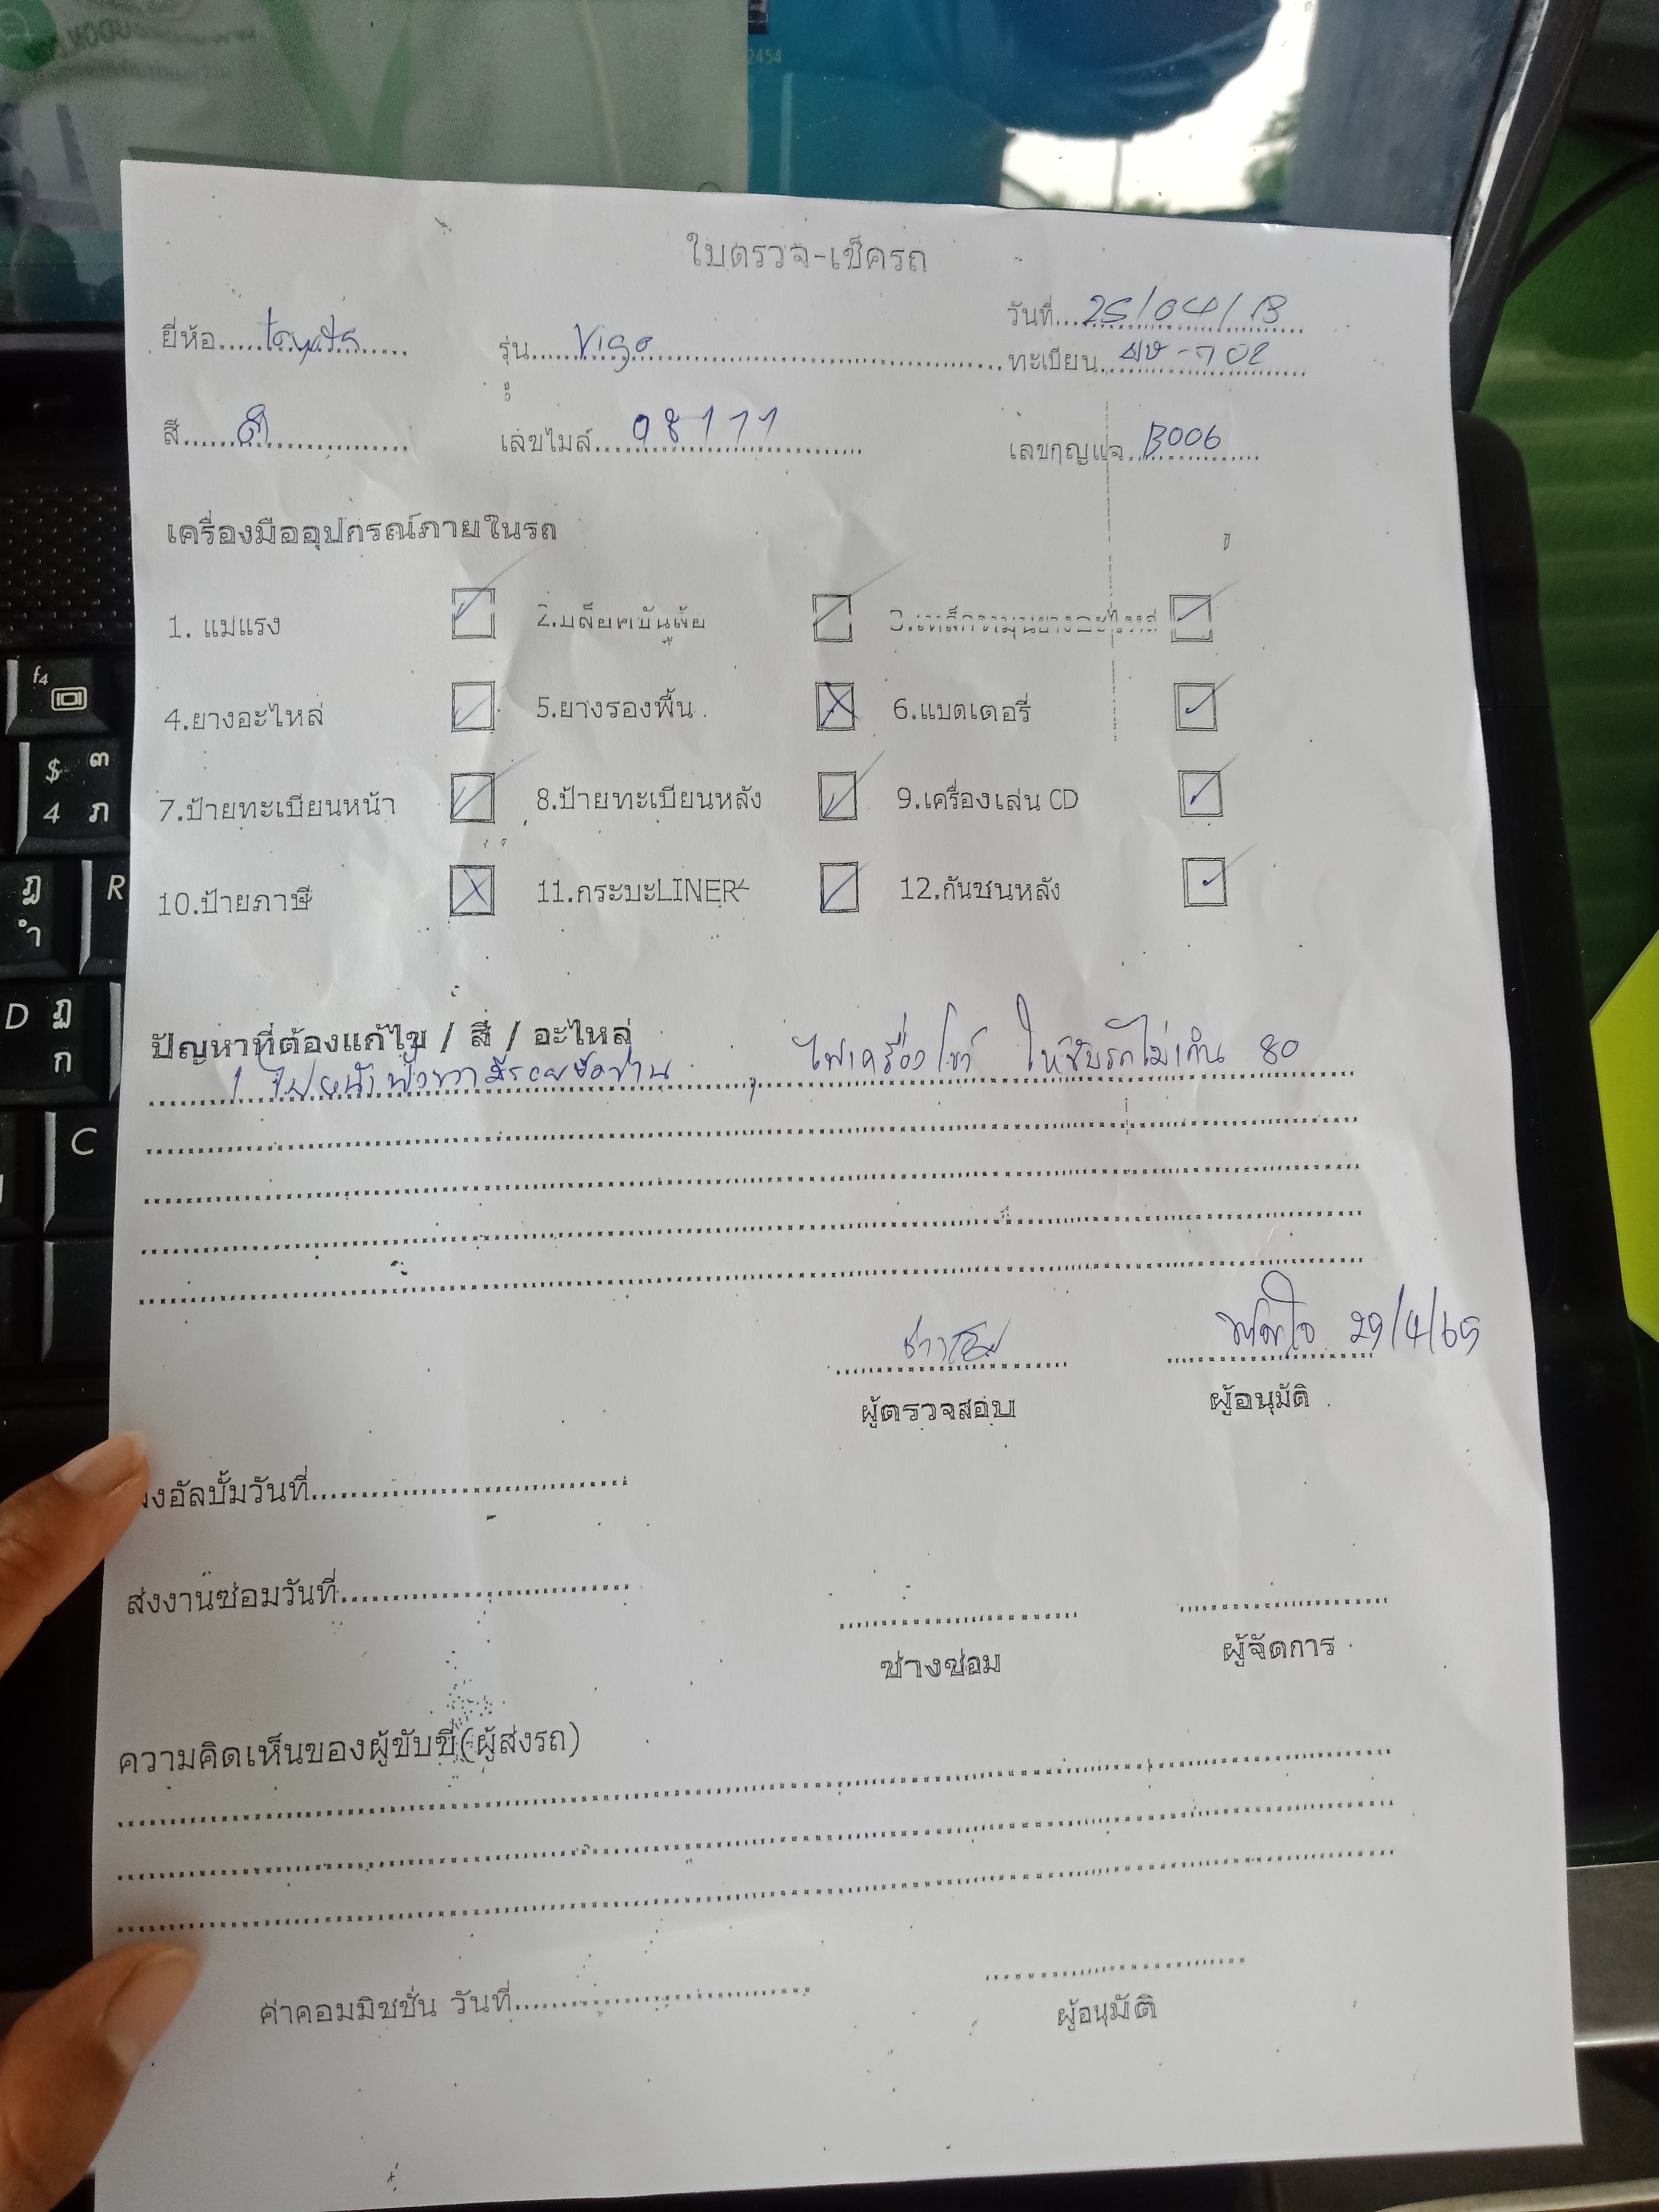 2454
ใบตรวจ-เช็ครถ
วันที่ 25/04/
ยี่ห้อ toyota รุ่น Vigo ทะเบียน
สี ดำ เลขไมล์ เลขกุญแจ B006
เครื่องมืออุปกรณ์ภายในรถ
1. แม่แรง 2.บล็อคขันล้อ 3.เหล็กหมุนยางอะไหล่
4.ยางอะไหล่ 5.ยางรองพื้น 6.แบตเตอรี่
7.ป้ายทะเบียนหน้า 8.ป้ายทะเบียนหลัง 9.เครื่องเล่น CD
10.ป้ายภาษี 11.กระบะLINER 12.กันชนหลัง
ปัญหาที่ต้องแก้ไข / สี / อะไหล่
1 ไฟหน้าฝั่งขวามีรอย , ไฟเครื่องโชว์ ให้ขับรถไม่เกิน 80
29/4/65
ผู้ตรวจสอบ ผู้อนุมัติ
ลงอัลบั้มวันที่
ส่งงานซ่อมวันที่
ช่างซ่อม ผู้จัดการ
ความคิดเห็นของผู้ขับขี่(ผู้ส่งรถ)
ค่าคอมมิชชั่น วันที่
ผู้อนุมัติ
f4
$ ๓
4 ภ
ฎ R
ำ
D ฏ
ก
C